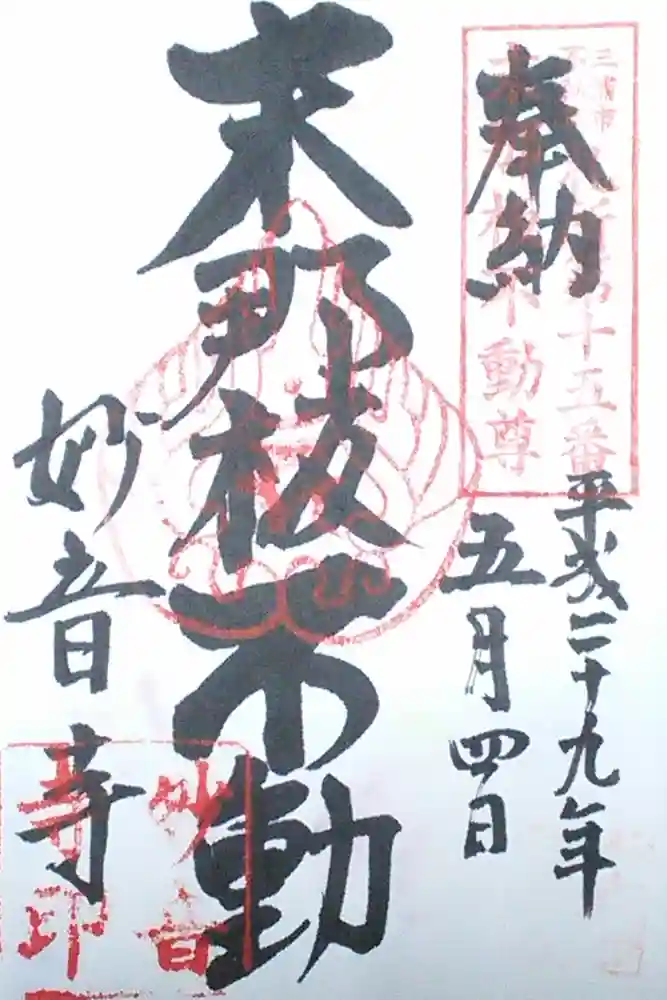 奉納
平成二十九年
五月四日
末那板不動
妙音寺
第十五番
不動尊
妙音
寺印